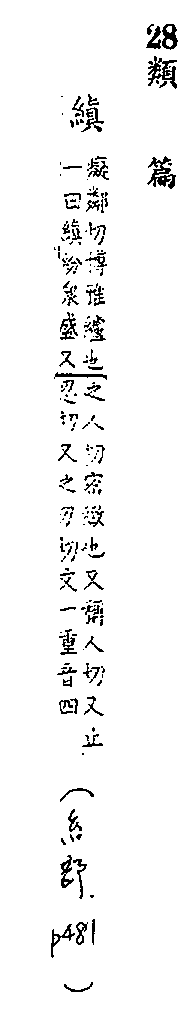 28 類 篇
縝
癡鄰切博雅纑也
一曰縝紛衆盛又
之人切密緻也又稱人切又止
忍切又之刃切文一重音四
(糸部.p481)